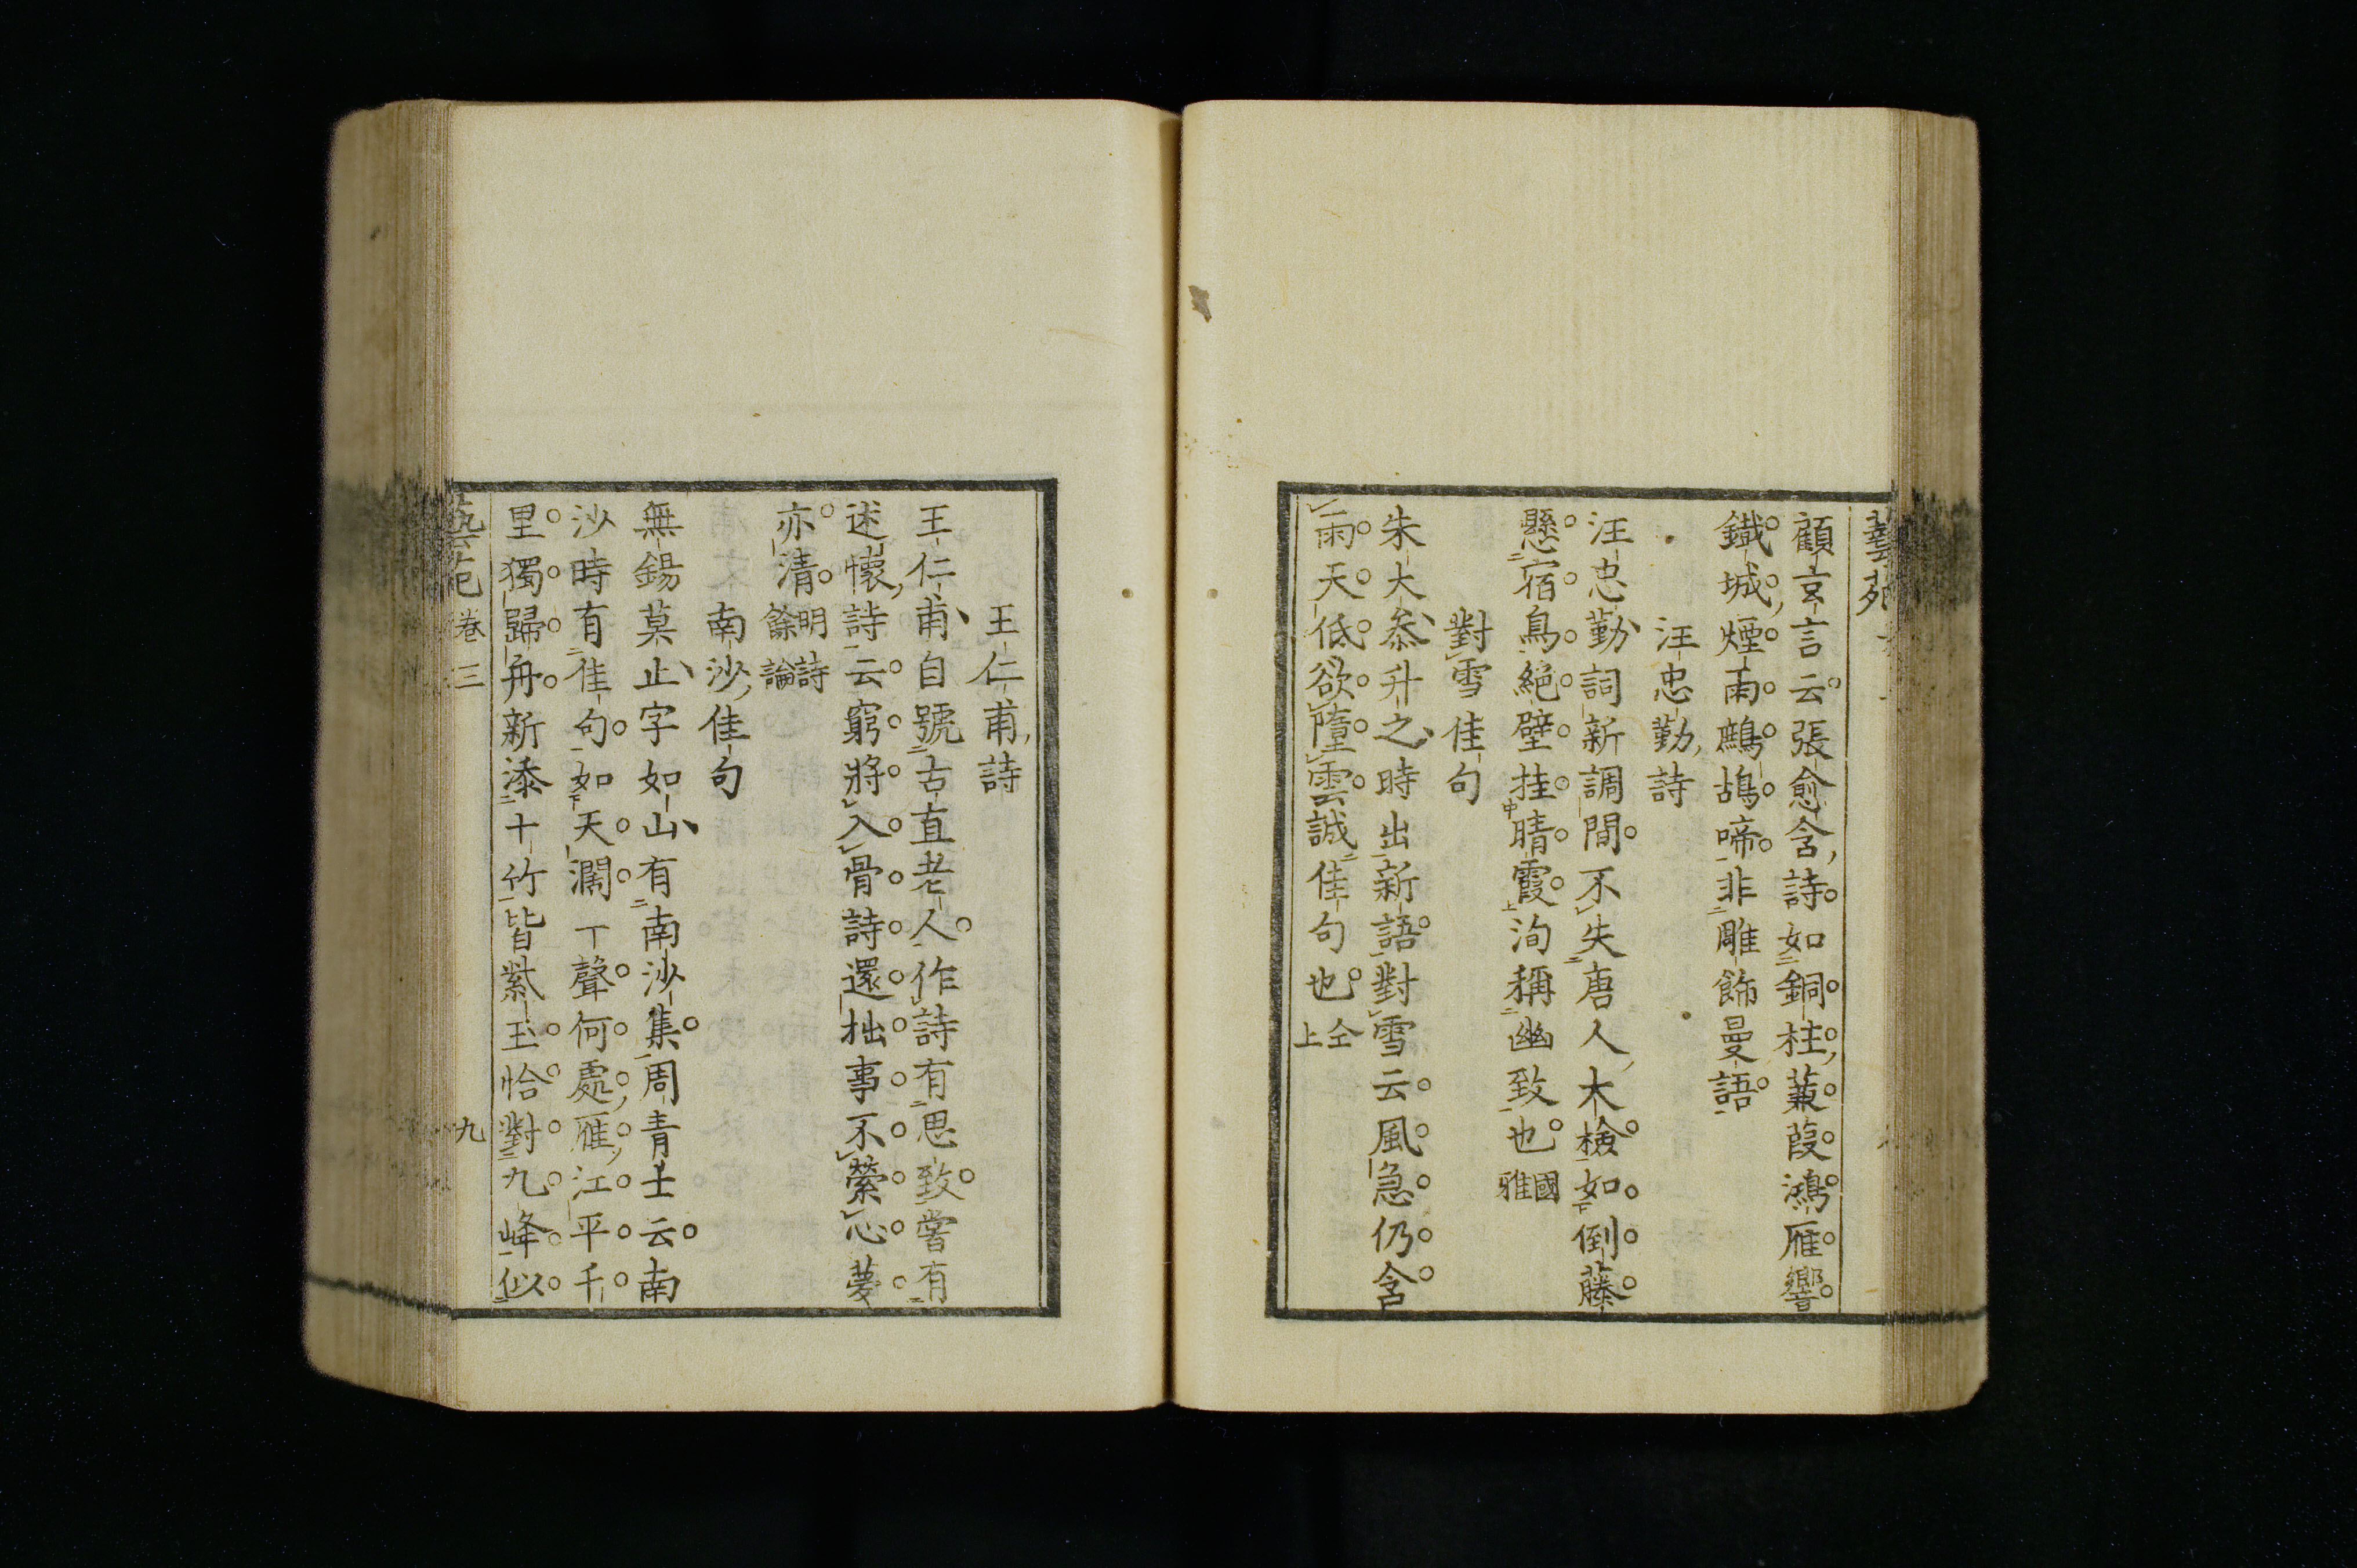 藝苑
顧玄言云張愈含詩如銅柱蒹葭鴻雁響
鐵城煙雨鷓鴣啼非雕飾曼語
汪忠勤詩
汪忠勤詞新調閒不失唐人大檢如倒藤
懸宿鳥絕壁挂晴霞洵稱幽致也國雅
對雪佳句
朱大叅升之時出新語對雪云風急仍含
雨天低欲墮雲誠佳句也仝上
王仁甫詩
王仁甫自號古直老人作詩有思致嘗有
述懷詩云窮將入骨詩還拙事不縈心夢
亦清明詩餘論
南沙佳句
無錫莫止字如山有南沙集周青士云南
沙時有佳句如天濶一聲何處雁江平千
里獨歸舟新添十竹皆紫玉恰對九峰似
卷三 九